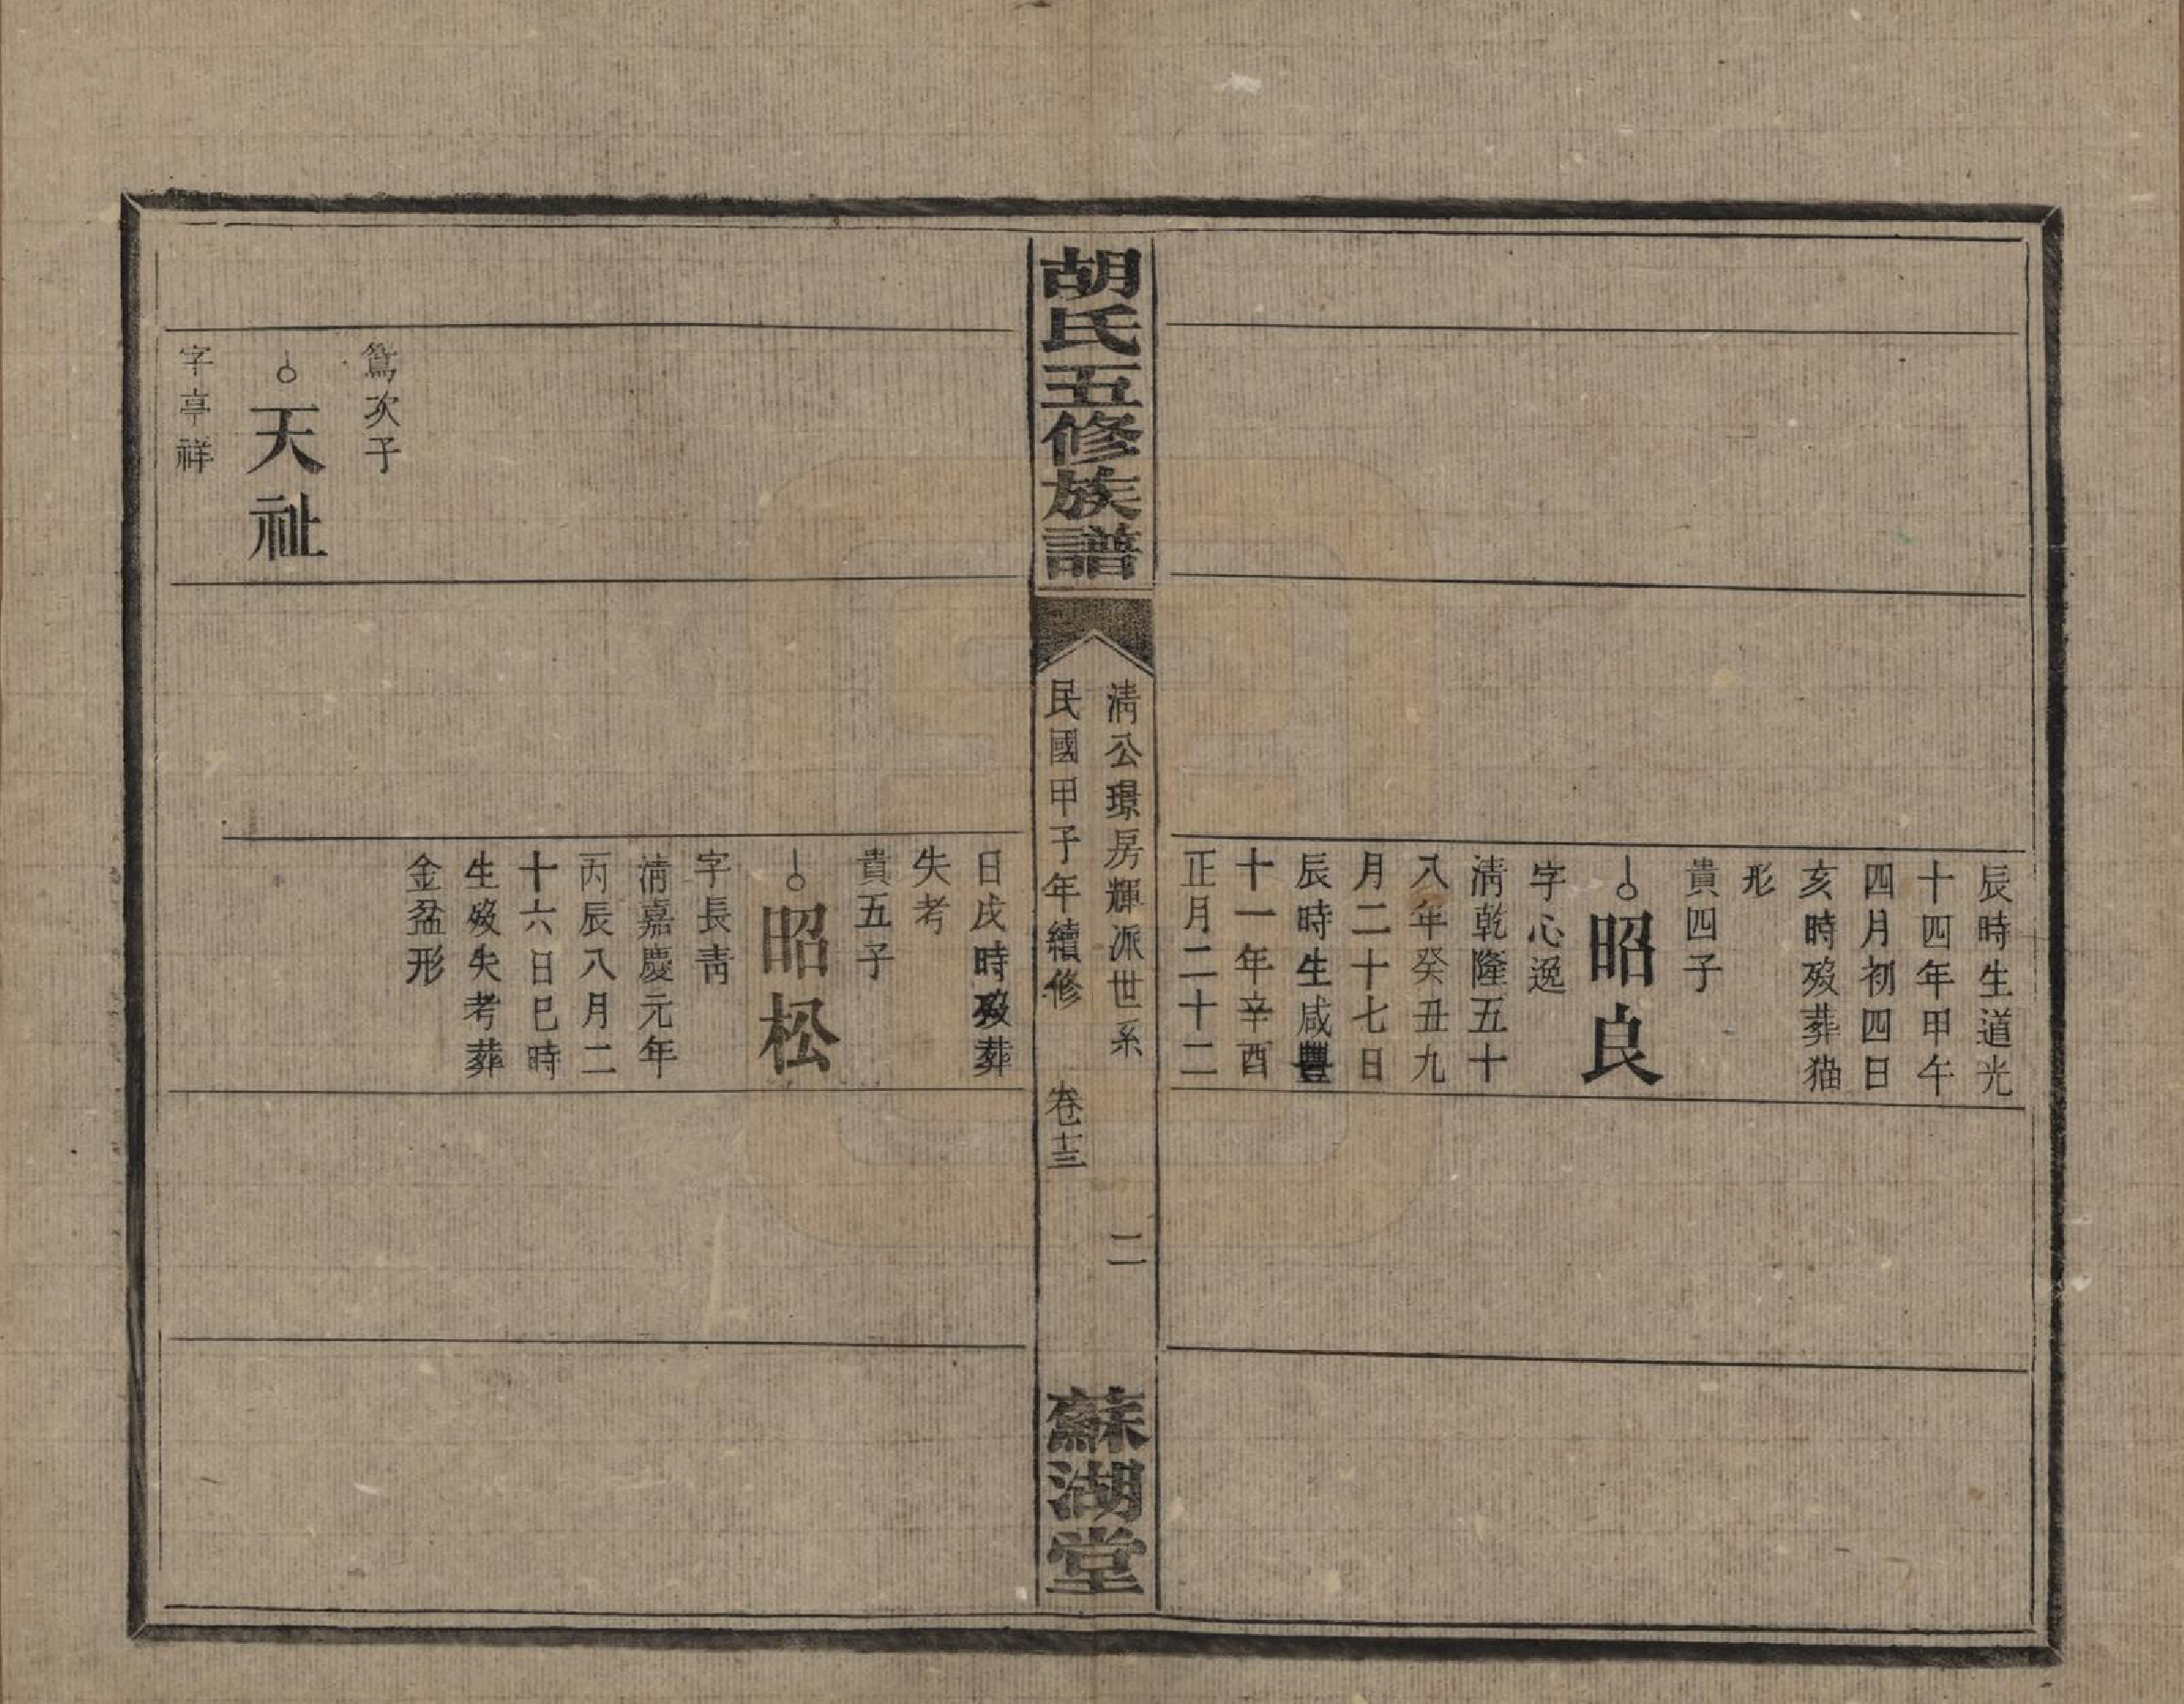 辰時生道光
十四年甲午
四月初四日
亥時歿葬猫
形
貴四子
昭良
字心逸
淸乾隆五十
八年癸丑九
月二十七日
辰時生咸豐
十一年辛酉
正月二十二
胡氏五修族譜
淸公璟房輝派世系
二
民國甲子年續修
卷十三
蘇湖堂
日戌時歿葬
失考
貴五子
昭松
字長靑
淸嘉慶元年
丙辰八月二
十六日巳時
生歿失考葬
金盆形
篤次子
天祉
字亭祥